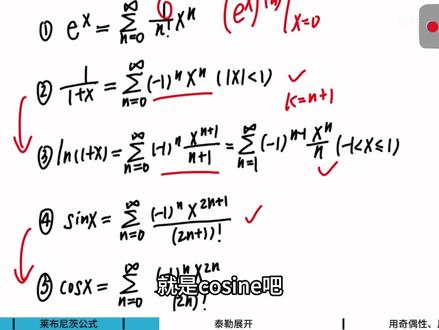 ① e^x = \sum_{n=0}^{∞} \frac{1}{n!} x^n (e^x)^{(n)}|_{x=0}
② \frac{1}{1+x} = \sum_{n=0}^{∞} (-1)^n x^n (|x|<1) ✓
k=n+1
③ ln(1+x) = \sum_{n=0}^{∞} (-1)^n \frac{x^{n+1}}{n+1} = \sum_{n=1}^{∞} (-1)^{n-1} \frac{x^n}{n} (-1<x≤1) ✓
④ sinx = \sum_{n=0}^{∞} \frac{(-1)^n x^{2n+1}}{(2n+1)!} ✓
⑤ cosx = \sum_{n=0}^{∞} \frac{(-1)^n x^{2n}}{(2n)!}
就是cosine吧
莱布尼茨公式 泰勒展开 用奇偶性、